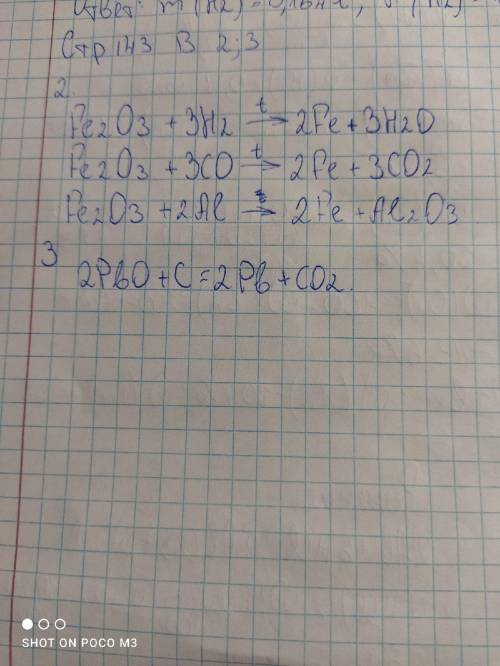 Ответ: m (H2) =
Стр 143 В 2; 3
2.
Fe2O3 + 3H2 t→ 2Fe + 3H2O
Fe2O3 + 3CO t→ 2Fe + 3CO2
Fe2O3 + 2Al → 2Fe + Al2O3
3
2PbO + C = 2Pb + CO2.
SHOT ON POCO M3